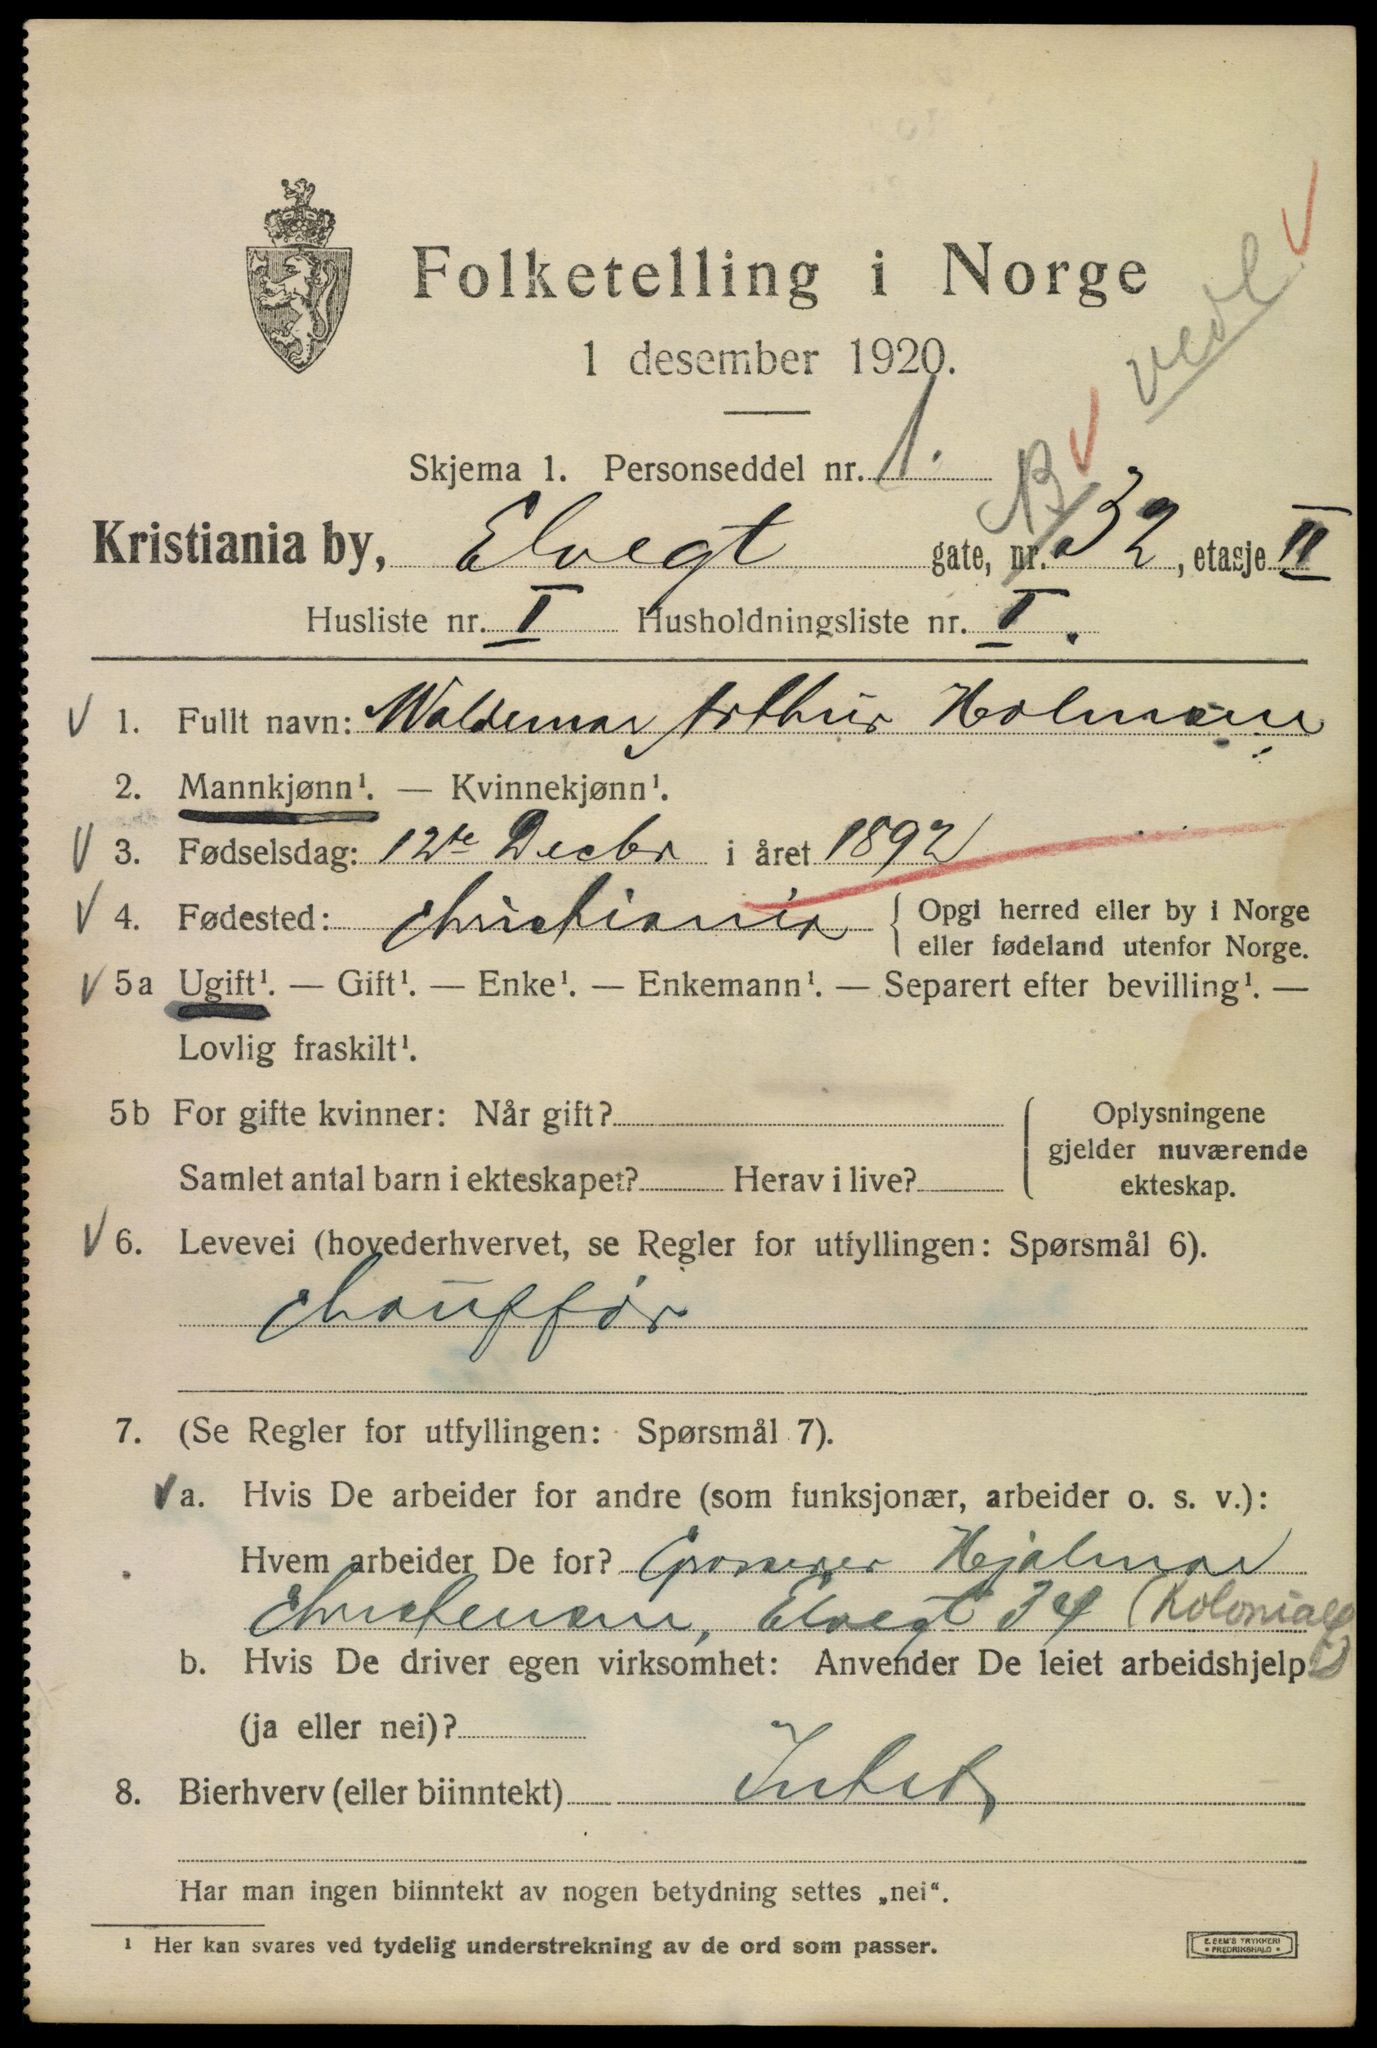 Folketelling i Norge
1 desember 1920.
vedl
Skjema 1. Personseddel nr. 1.
Kristiania by, Elvegt gate, nr. 32, etasje II
Husliste nr. I Husholdningsliste nr. I.
1. Fullt navn: Waldemar Arthur Holmsen
2. Mannkjønn¹. — Kvinnekjønn¹.
3. Fødselsdag: 12te Decbr i året 1892
4. Fødested: Christiania { Opgi herred eller by i Norge
eller fødeland utenfor Norge.
5a Ugift¹. — Gift¹. — Enke¹. — Enkemann¹. — Separert efter bevilling¹. —
Lovlig fraskilt¹.
5b For gifte kvinner: Når gift? Oplysningene
gjelder nuværende
Samlet antal barn i ekteskapet? Herav i live? ekteskap.
6. Levevei (hovederhvervet, se Regler for utfyllingen: Spørsmål 6).
Chauffør
7. (Se Regler for utfyllingen: Spørsmål 7).
a. Hvis De arbeider for andre (som funksjonær, arbeider o. s. v.):
Hvem arbeider De for? Grosserer Hjalmar
Christensen, Elvegt 34 (Kolonial
b. Hvis De driver egen virksomhet: Anvender De leiet arbeidshjelp
(ja eller nei)?
8. Bierhverv (eller biinntekt) Intet
Har man ingen biinntekt av nogen betydning settes „nei“.
¹ Her kan svares ved tydelig understrekning av de ord som passer.
E. SEM'S TRYKKERI
• FREDRIKSHALD •